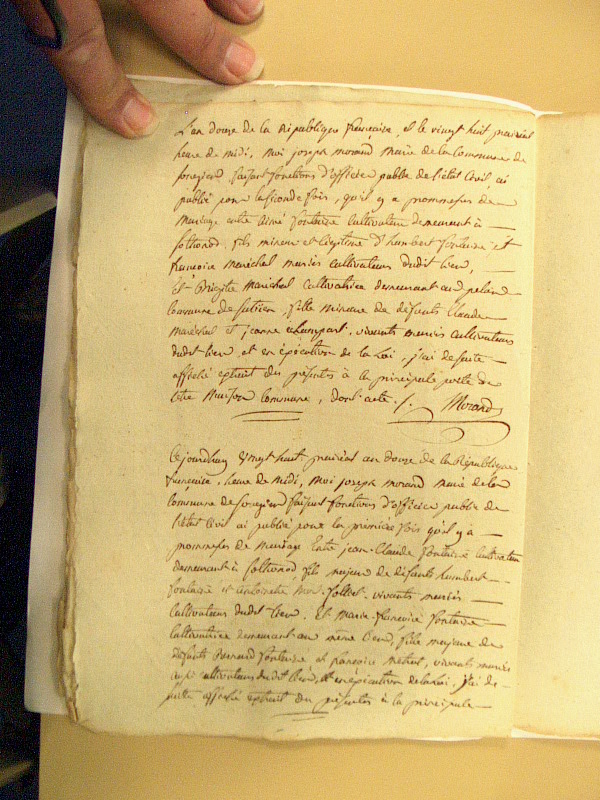 L'an douze de la République française, et le vingt huit prairial
heure de midi, Moi joseph morand Maire de la Commune de
faisant fonctions d'officier public de l'état Civil, ai
publié pour la seconde fois, qu'il y a promesses de
Mariage entre aimé fontaine Cultivateur demeurant à
fils mineur et légitime d'humbert fontaine et
françoise maréchal mariés cultivateurs dudit lieu,
Et Brigitte Maréchal Cultivatrice demeurant au
Commune de fille mineure de défunts Claude
Maréchal et jeanne vivants mariés cultivateurs
dudit lieu, et en exécution de la Loi, j'ai de suite
affiché extrait des présentes à la principale porte de
cette Maison Commune, dont acte ./. Morand
Cejourdhuy Vingt huit prairial an douze de la République
française, heure de midi, Moi joseph morand Maire de la
Commune de faisant fonctions d'officier public de
l'état Civil ai publié pour la première fois qu'il y a
promesses de Mariage Entre jean-Claude fontaine Cultivateur
demeurant à fils majeur de défunts humbert
fontaine et vivants mariés
cultivateurs dudit lieu. Et Marie françoise fontaine
Cultivatrice demeurant au même lieu, fille majeure de
défunts Bernard fontaine et françoise vivants mariés
aussi cultivateurs dudit lieu, et en exécution de la Loi. j'ai de
suite affiché extrait des présentes à la principale